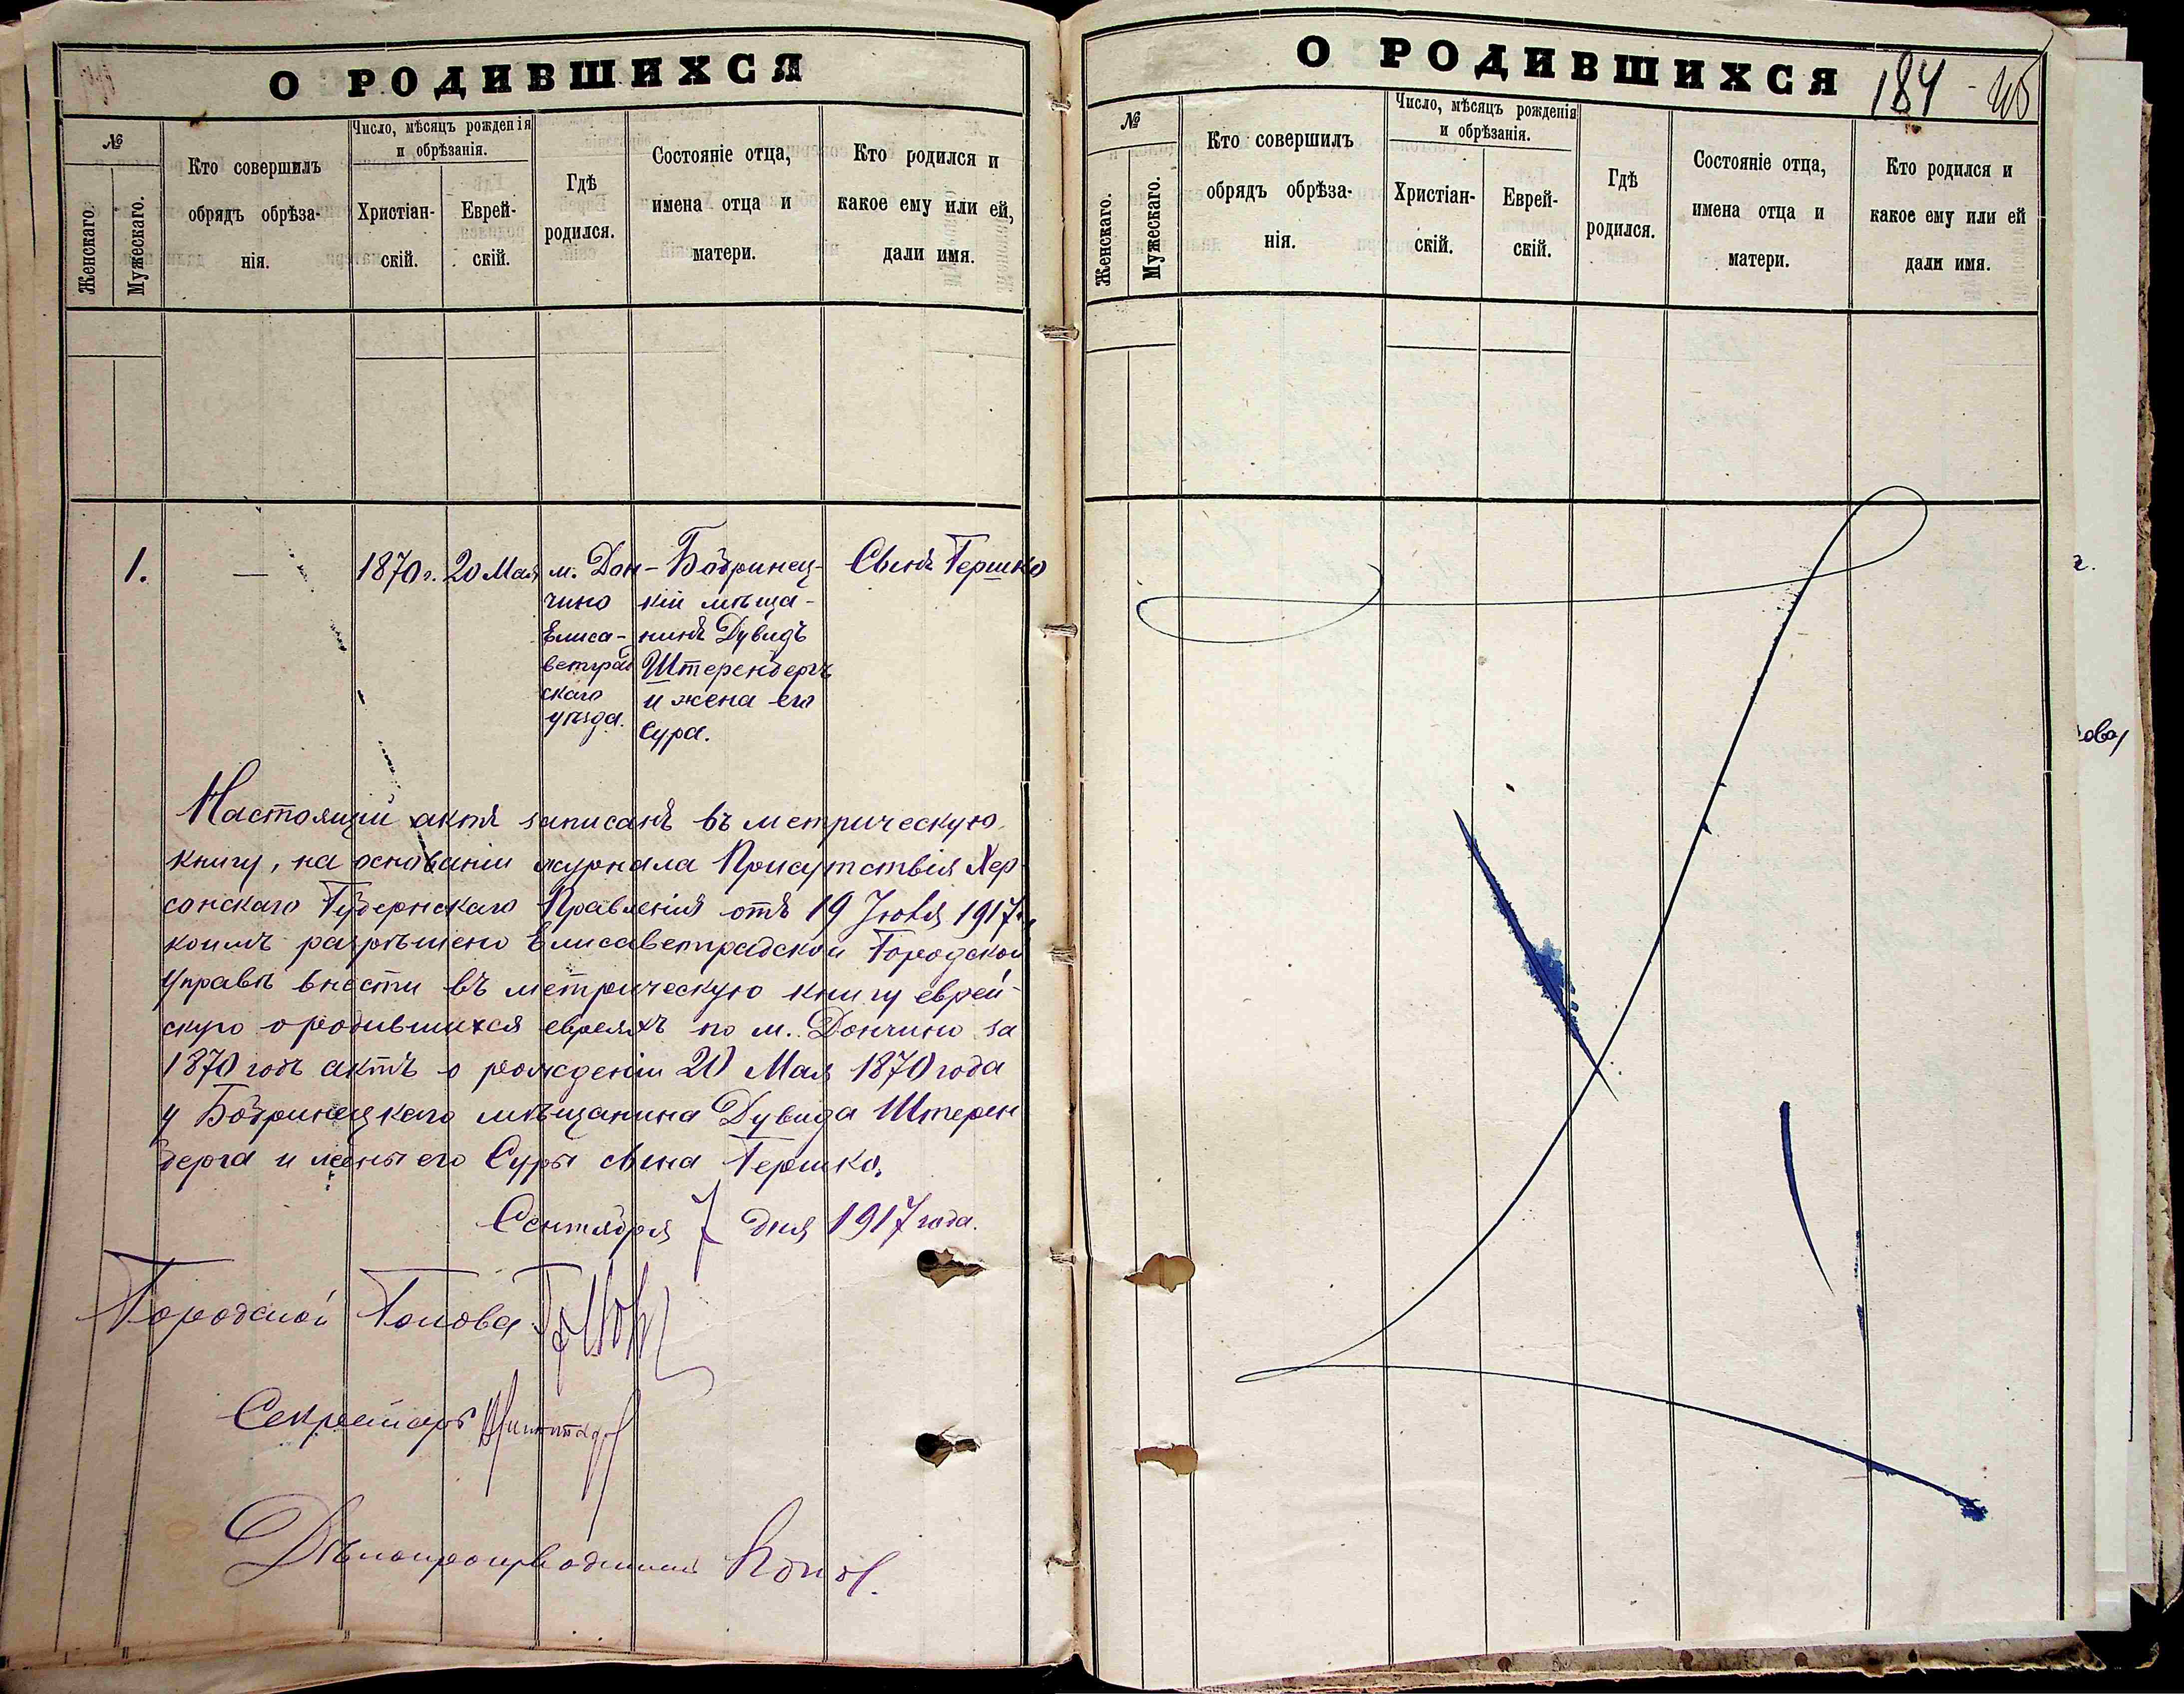 О РОДИВШИХСЯ
№
Женскаго.
Мужескаго.
Кто совершилъ
обрядъ обрѣза-
нія.
Число, мѣсяцъ рожденія
и обрѣзанія.
Христіан-
скій.
Еврей-
скій.
Гдѣ
родился.
Состояніе отца,
имена отца и
матери.
Кто родился и
какое ему или ей,
дали имя.
1.
—
1870 г.
20 Мая
м. Дон-
чино
Елиса-
ветград
скаго
уѣзда.
Бобринец-
кій мѣща-
нинъ Дувидъ
Штеренбергъ
и жена его
Сура.
Сынъ Гершко
Настоящій актъ записанъ въ метрическую
книгу, на основаніи журнала Присутствія Хер-
сонскаго Губернскаго Правленія отъ 19 Іюля 1917 г.,
коимъ разрѣшено Елисаветградской Городской
Управѣ внести въ метрическую книгу еврей-
скую о родившихся евреяхъ по м. Дончино за
1870 годъ актъ о рожденіи 20 Мая 1870 года
у Бобринецкаго мѣщанина Дувида Штерен
берга и жены его Суры сына Гершко.
Сентября 7 дня 1917 года.
Городской Голова
Секретарь
Дѣлопроизводитель
О РОДИВШИХСЯ
184
№
Женскаго.
Мужескаго.
Кто совершилъ
обрядъ обрѣза-
нія.
Число, мѣсяцъ рожденія
и обрѣзанія.
Христіан-
скій.
Еврей-
скій.
Гдѣ
родился.
Состояніе отца,
имена отца и
матери.
Кто родился и
какое ему или ей
дали имя.